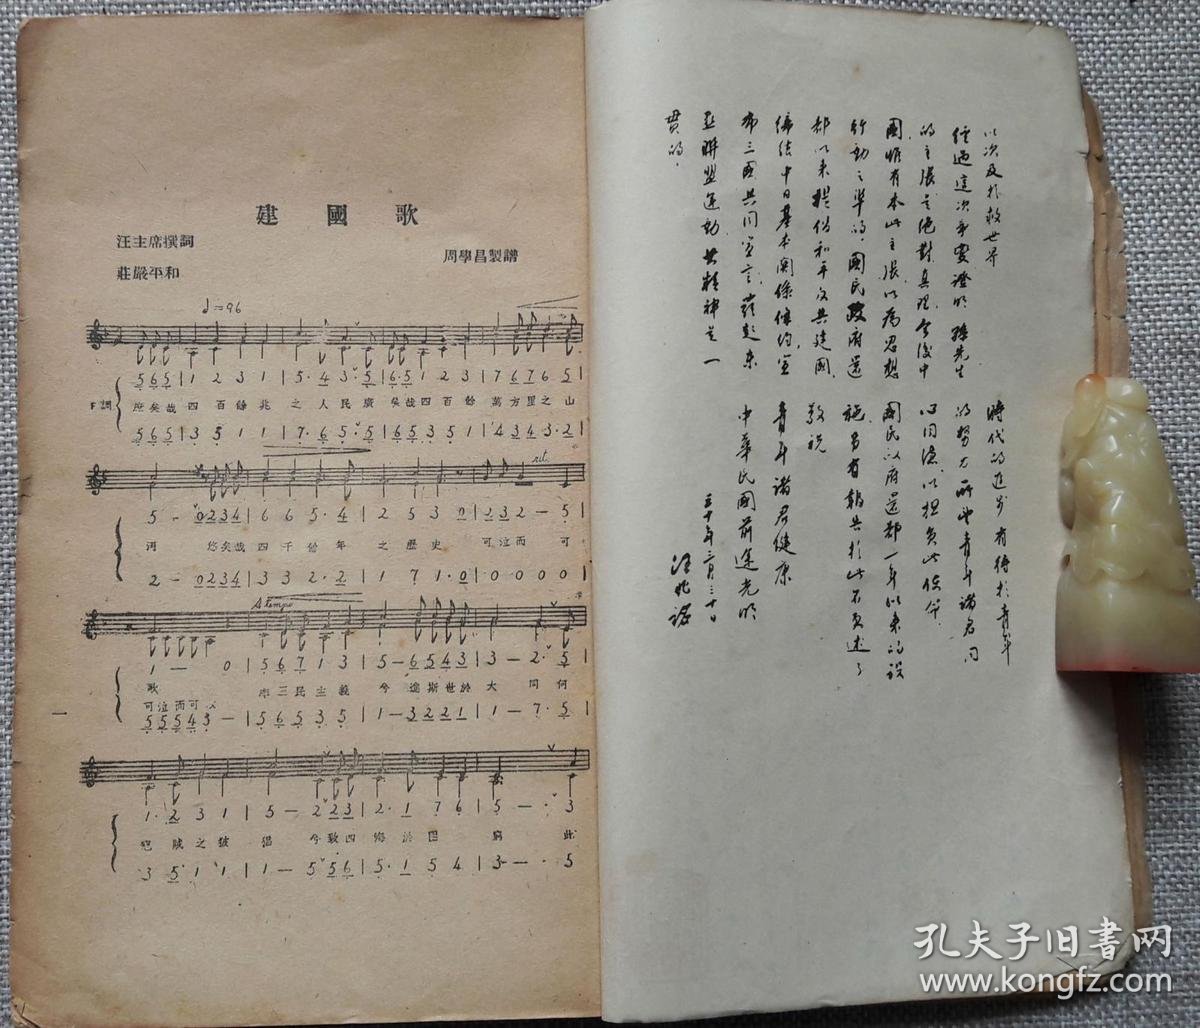 以次及於救世界
經過這次事變證明 孫先生
的主張是絕對真理,今後中
國惟有本此主張,以為思想
行動之準的,國民政府還
都以來提倡和平反共建國,
締結中日基本關係條約,宣
布三國共同宣言,發起東
亞聯盟運動,其精神是一
貫的。
時代的進步有待於青年
的努力所望青年諸君同
心同德,以担負此使命
國民政府還都一年以來的設
施另有報於此不述了
敬祝
青年諸君健康
中華民國前途光明
三十年三月三十日
汪兆銘
建國歌
汪主席撰詞
周學昌製譜
莊嚴平和
♩=96
5 6 5 | 1 2 3 1 | 5· 4 3 5 | 6·5 1 2 3 | 7 6 7 6 5 |
F調 庶矣哉四百餘兆之人民廣矣哉四百餘萬方里之山
5 6 5 | 3 5 1 1 | 7· 6 5 5 | 6·5 1 5 1 | 2 4 3 4 3·2 |
rit.
5 - 0 2 3 4 | 6 6 5·4 | 2 5 3 0 | 0 2 3 2 - 5 |
河 悠矣哉四千餘年之歷史 可泣而可
2 - 0 2 3 4 | 3 3 2·2 | 1 7 1·0 | 0 0 0 0 |
A tempo
1 - 0 | 5 6 7 1 3 | 5 - 6 5 4 3 | 3 - 2· 5 |
歌 本三民主義兮進斯世於大同何
可泣而可
5 5 5 4 3 - | 5 6 5 3 5 | 1 - 3 2 2 1 | 1 - 7· 5 |
一
1·2 3 1 | 5 - 2 2 3 | 2· 1 7 6 | 5 - · 3
寇賊之披猖兮致四海於困窮此
3 5 1 1 | 1 - 5 5 6 | 5· 1 5 4 | 3 - · 5
孔夫子旧書网
www.kongfz.com